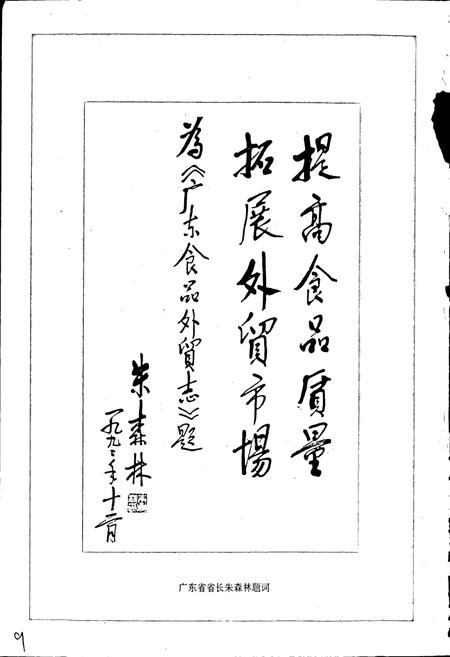 提高食品质量
拓展外贸市场
为《广东食品外贸志》题
朱森林
一九九二年十二月
广东省省长朱森林题词
9